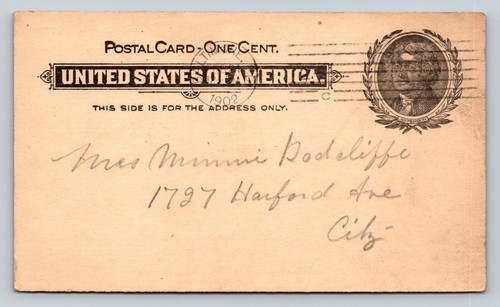 POSTAL CARD - ONE CENT.
UNITED STATES OF AMERICA.
THIS SIDE IS FOR THE ADDRESS ONLY.
1902
C
Mrs Minnie Radcliffe
1727 Harford Ave
City